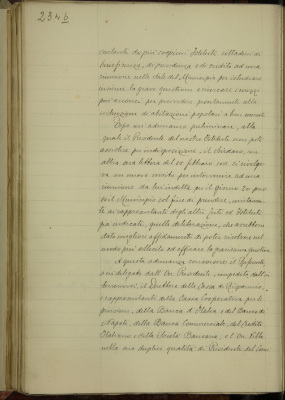 234 b
cortante dai più cospicui Istituti cittadini di
beneficenza, di previdenza e di credito ad una
riunione nella sede del Municipio per istudiare
insieme la grave questione e ricercare i mezzi
più idonei per provvedere prontamente alla
costruzione di abitazioni popolari a buon mercato.
Dopo un'adunanza preliminare, alla
quale il Presidente del nostro Istituto non potè
assistere per indisposizione, il Sindaco, in
altra sua lettera del 20 febbraio
un nuovo invito per intervenire ad una
riunione da lui indetta per il giorno
al Municipio col fine di prendere,
ai rappresentanti degli altri Enti ed Istituti
più indicati, quelle deliberazioni, che avrebbero
dato migliore affidamento di poter risolvere nel
modo più sollecito ed efficace la questione
A questa adunanza convennero il
delegato dall'On. Presidente, impedito dall'
intervenirvi, il Direttore della Cassa di Risparmio,
il rappresentante della Cassa Cooperativa per le
pensioni, della Banca d'Italia e del Banco di
Napoli, della Banca Commerciale, del Credito
Italiano e della Società Bancaria, e l'On. Villa
nella sua duplice qualità di Presidente del